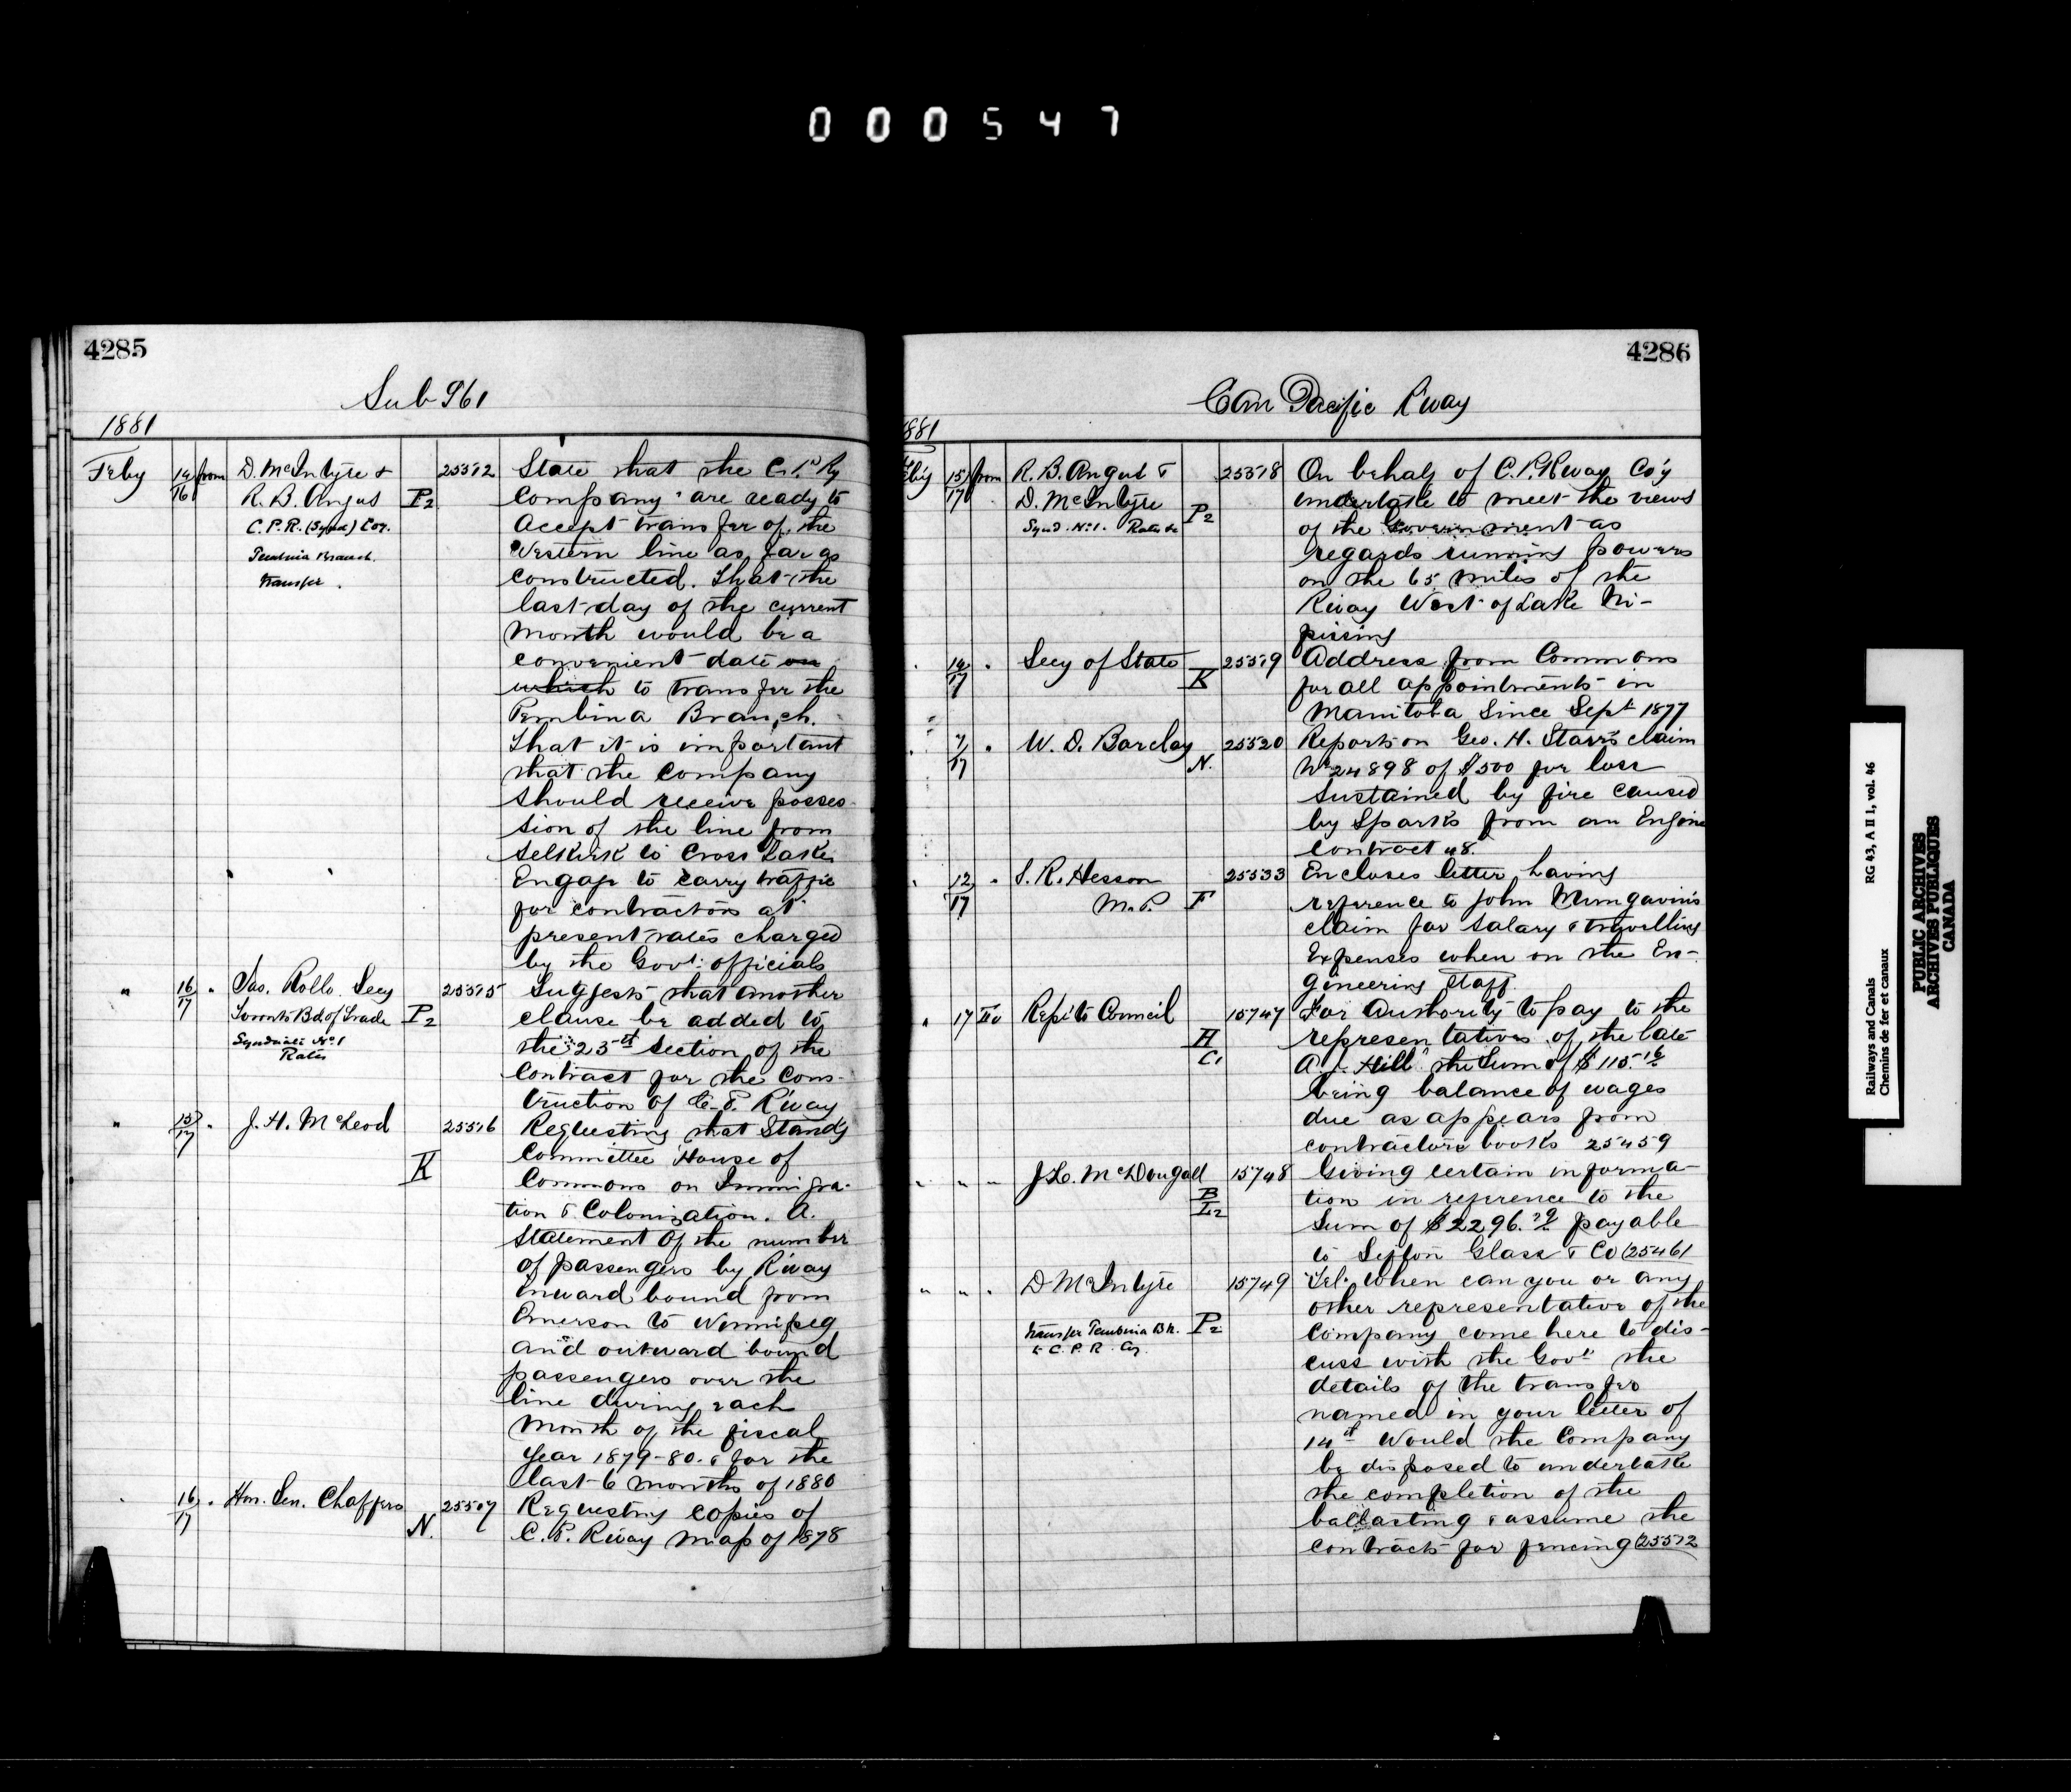 000547
4285
Sub 961
1881
Feby 14/16 from D. McIntyre & 25512 State that the C. P. Ry
R. B. Angus P2 Company are ready to
C.P.R. (Synd) Coy. accept transfer of the
Pembina Branch Western line as far as
transfer. constructed. That the
last day of the current
month would be a
convenient date on
which to transfer the
Pembina Branch.
That it is important
that the company
should receive posses-
sion of the line from
Selkirk to Cross Lake
Engage to carry traffic
for contractors at
present rates charged
by the Govt. officials
" 16/17 " Jas. Rollo Secy 25515 Suggests that another
Toronto Bd. of Trade P2 clause be added to
Syndicate No. 1 the 23rd Section of the
Rates Contract for the Cons-
truction of C. P. R'way
" 15/17 " J. H. McLeod 25516 Requesting that Stand'g
K Committee House of
Commons on Immigra-
tion & Colonization. A.
Statement of the number
of passengers by R'way
inward bound from
Emerson to Winnipeg
and outward bound
passengers over the
line during each
month of the fiscal
year 1879-80. & for the
last 6 months of 1880
16/17 " Hon. Sen. Chaffers 25517 Requesting copies of
N. C. P. R'way map of 1878
4286
Can Pacific R'way
1881
Feb'y 15/17 from R. B. Angus & 25518 On behalf of C. P. R'way Co'y
D. McIntyre P2 undertake to meet the views
Synd. No. 1. Rates &c of the Government as
regards running powers
on the 65 miles of the
R'way West of Lake Ni-
pissing
" 14/17 " Secy of State 25519 Address from Commons
K for all appointments in
Manitoba Since Sept 1877
" 7/17 " W. D. Barclay 25520 Reports on Geo. H. Starr's claim
N. No 24898 of $500 for loss
sustained by fire caused
by Sparks from an Engine
Contract 48.
" 12/17 " S. R. Hesson 25533 Encloses letter having
M.P. F reference to John Mungavin's
claim for Salary & travelling
Expenses when on the En-
gineering Staff.
" 17 To Rep. to Council 15747 For Authority to pay to the
H representatives of the late
C1 A. J. Hill the Sum of $115.16
being balance of wages
due as appears from
contractors books 25459
" " " J. L. McDougall 15748 Giving certain informa-
B tion in reference to the
L2 Sum of $2296.79 payable
to Sifton Glass & Co (25461
" " " D McIntyre 15749 Tel. When can you or any
other representative of the
transfer Pembina Bh. P2 Company come here to dis-
to C.P.R. Coy. cuss with the Govt. the
details of the transfer
named in your letter of
14th Would the Company
be disposed to undertake
the completion of the
ballasting & assume the
contracts for fencing (25512
Railways and Canals RG 43, A II 1, vol. 46
Chemins de fer et canaux
PUBLIC ARCHIVES
ARCHIVES PUBLIQUES
CANADA